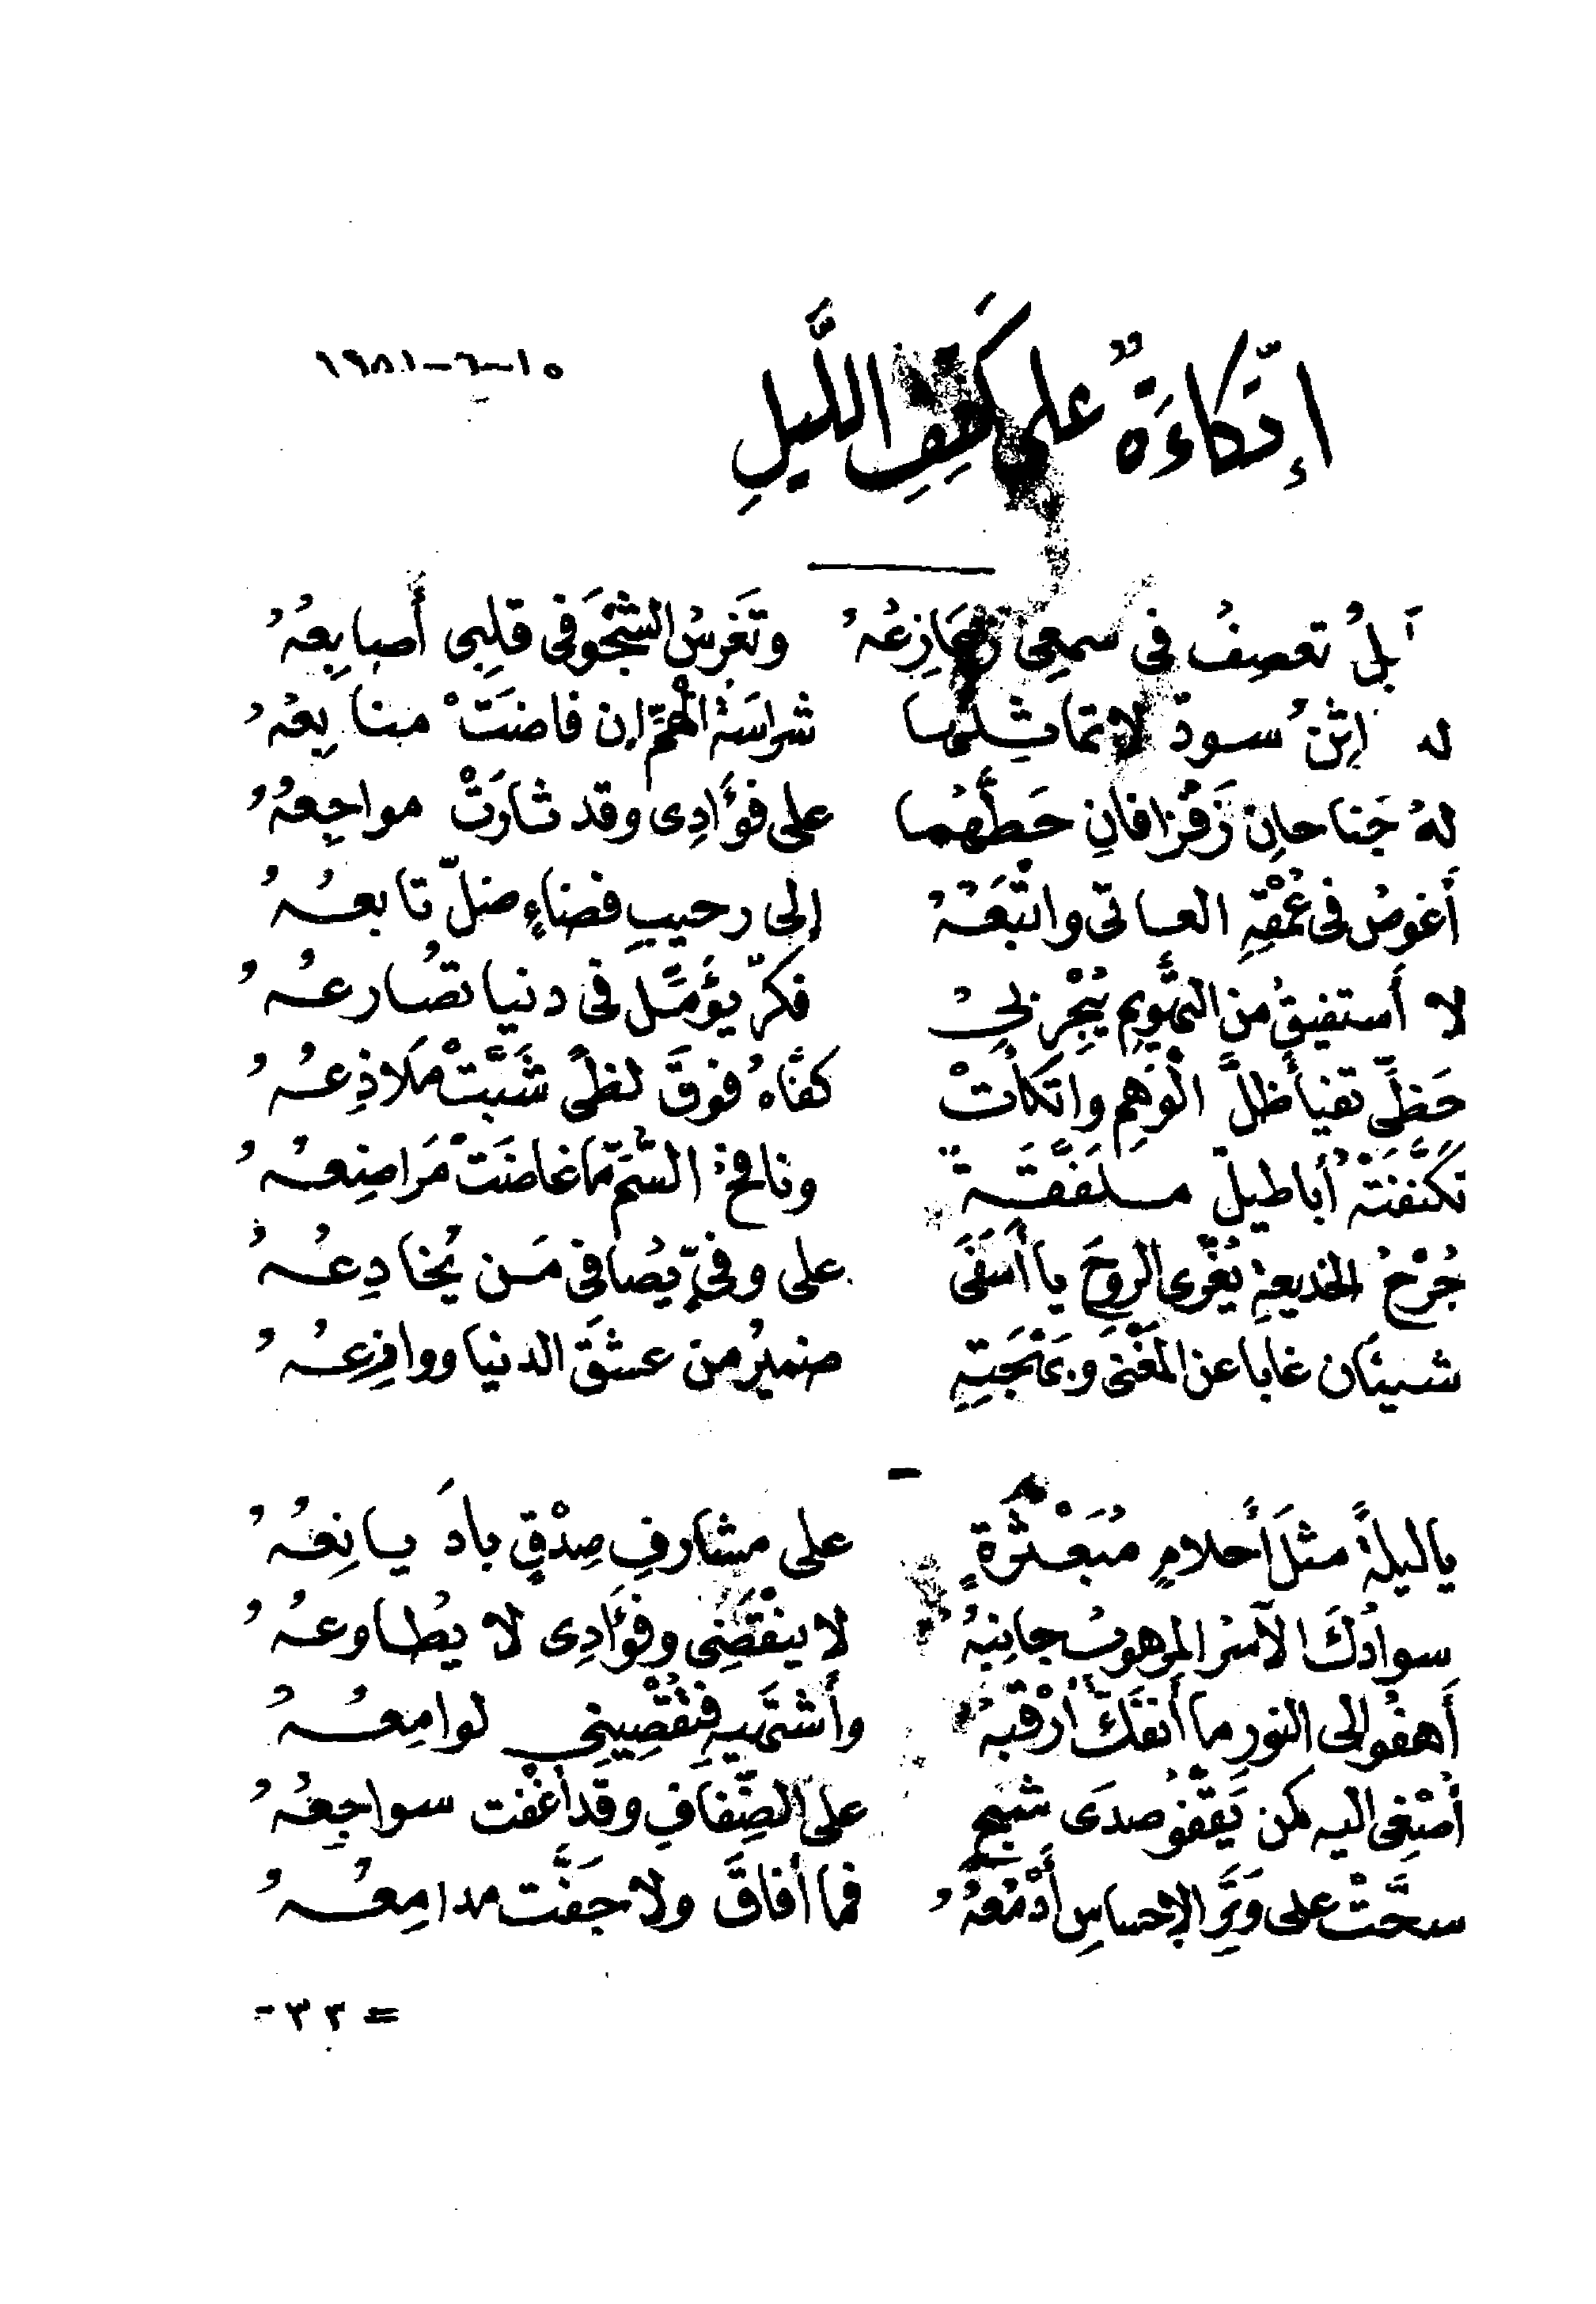 إتّكاءَةٌ على كَتِفِ اللَّيلِ
١٥-٦-١٩٨١
تعصِفُ فى سمعِى زعَازِعُهُ وتَغرِسُ الشَّجْوَ فى قلبِى أَصابِعُهُ
له سودٌ لا تماثِلها شراسَةُ الهمِّ إن فاضَتْ منابِعُهُ
لهُ جَناحانِ زَفْزافانِ حَطَّهُما على فؤَادِى وقد ثارَتْ مواجِعُهُ
أَغوصُ فى عُمْقِهِ العاتى واتْبَعُهُ إلى رحيبِ فضاءٍ ضلّ تابعُهُ
لا أَستفيقُ من التهْويمِ يُبْحِر بىْ فكرٌ يؤَمَّل فى دنيا تصُارعُهُ
حَظِّى تفيأَ ظلَّ الْوَهمِ واتكأَتْ كفَّاهُ فوقَ لظىً شَبَّتْ مَلاذِعُهُ
تكنَّفَتْهُ أَباطيلٌ مسلفَّقَةٌ ونافخُ السّمّ ما غاضَتْ مَراضِعُهُ
جُرْحُ الخديعةِ يُغْرى الروحَ يا أَسَفَى على وفىٍّ يُصافى مَن يُخادِعُهُ
شيئَان غابا عن المَغْنَى وبَهْجَتِهِ ضميرُ من عشقَ الدنيا ووازِعُهُ
يا ليلةً مثلَ أَحلامٍ مُبَعْثَرةٍ على مشارفِ صِدْقٍ بادَ يانِعُهُ
سوادُكَ الآسنُ المرهوبُ جانِبُهُ لا ينْقَضِى وفؤَادِى لا يُطاوعُهُ
أَهفُو إلى النورِ ما أَنفَكّ أَرْقبُهُ وأَشتَهيهِ فتُقْصِينِى لوامِعُهُ
أُصْغِى اليه كمن يَقْفُو صدَى شبحٍ على الضِّفافِ وقد أَغْفت سواجِعُهُ
سحَّتْ على وَتَرِ الإحساسِ أَدْمُعُهُ فما أَفاقَ ولا جَفَّت مدامِعُهُ
= ٣٣ -